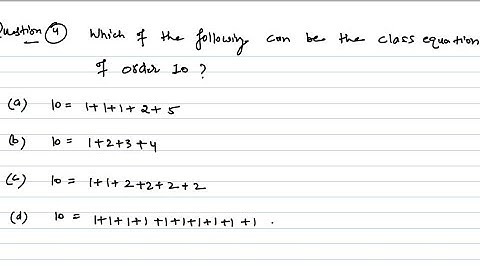 Question 4 Which of the following can be the class equation
of order 10 ?
(a) 10 = 1+1+1+2+5
(b) 10 = 1+2+3+4
(c) 10 = 1+1+2+2+2+2
(d) 10 = 1+1+1+1+1+1+1+1+1+1 .